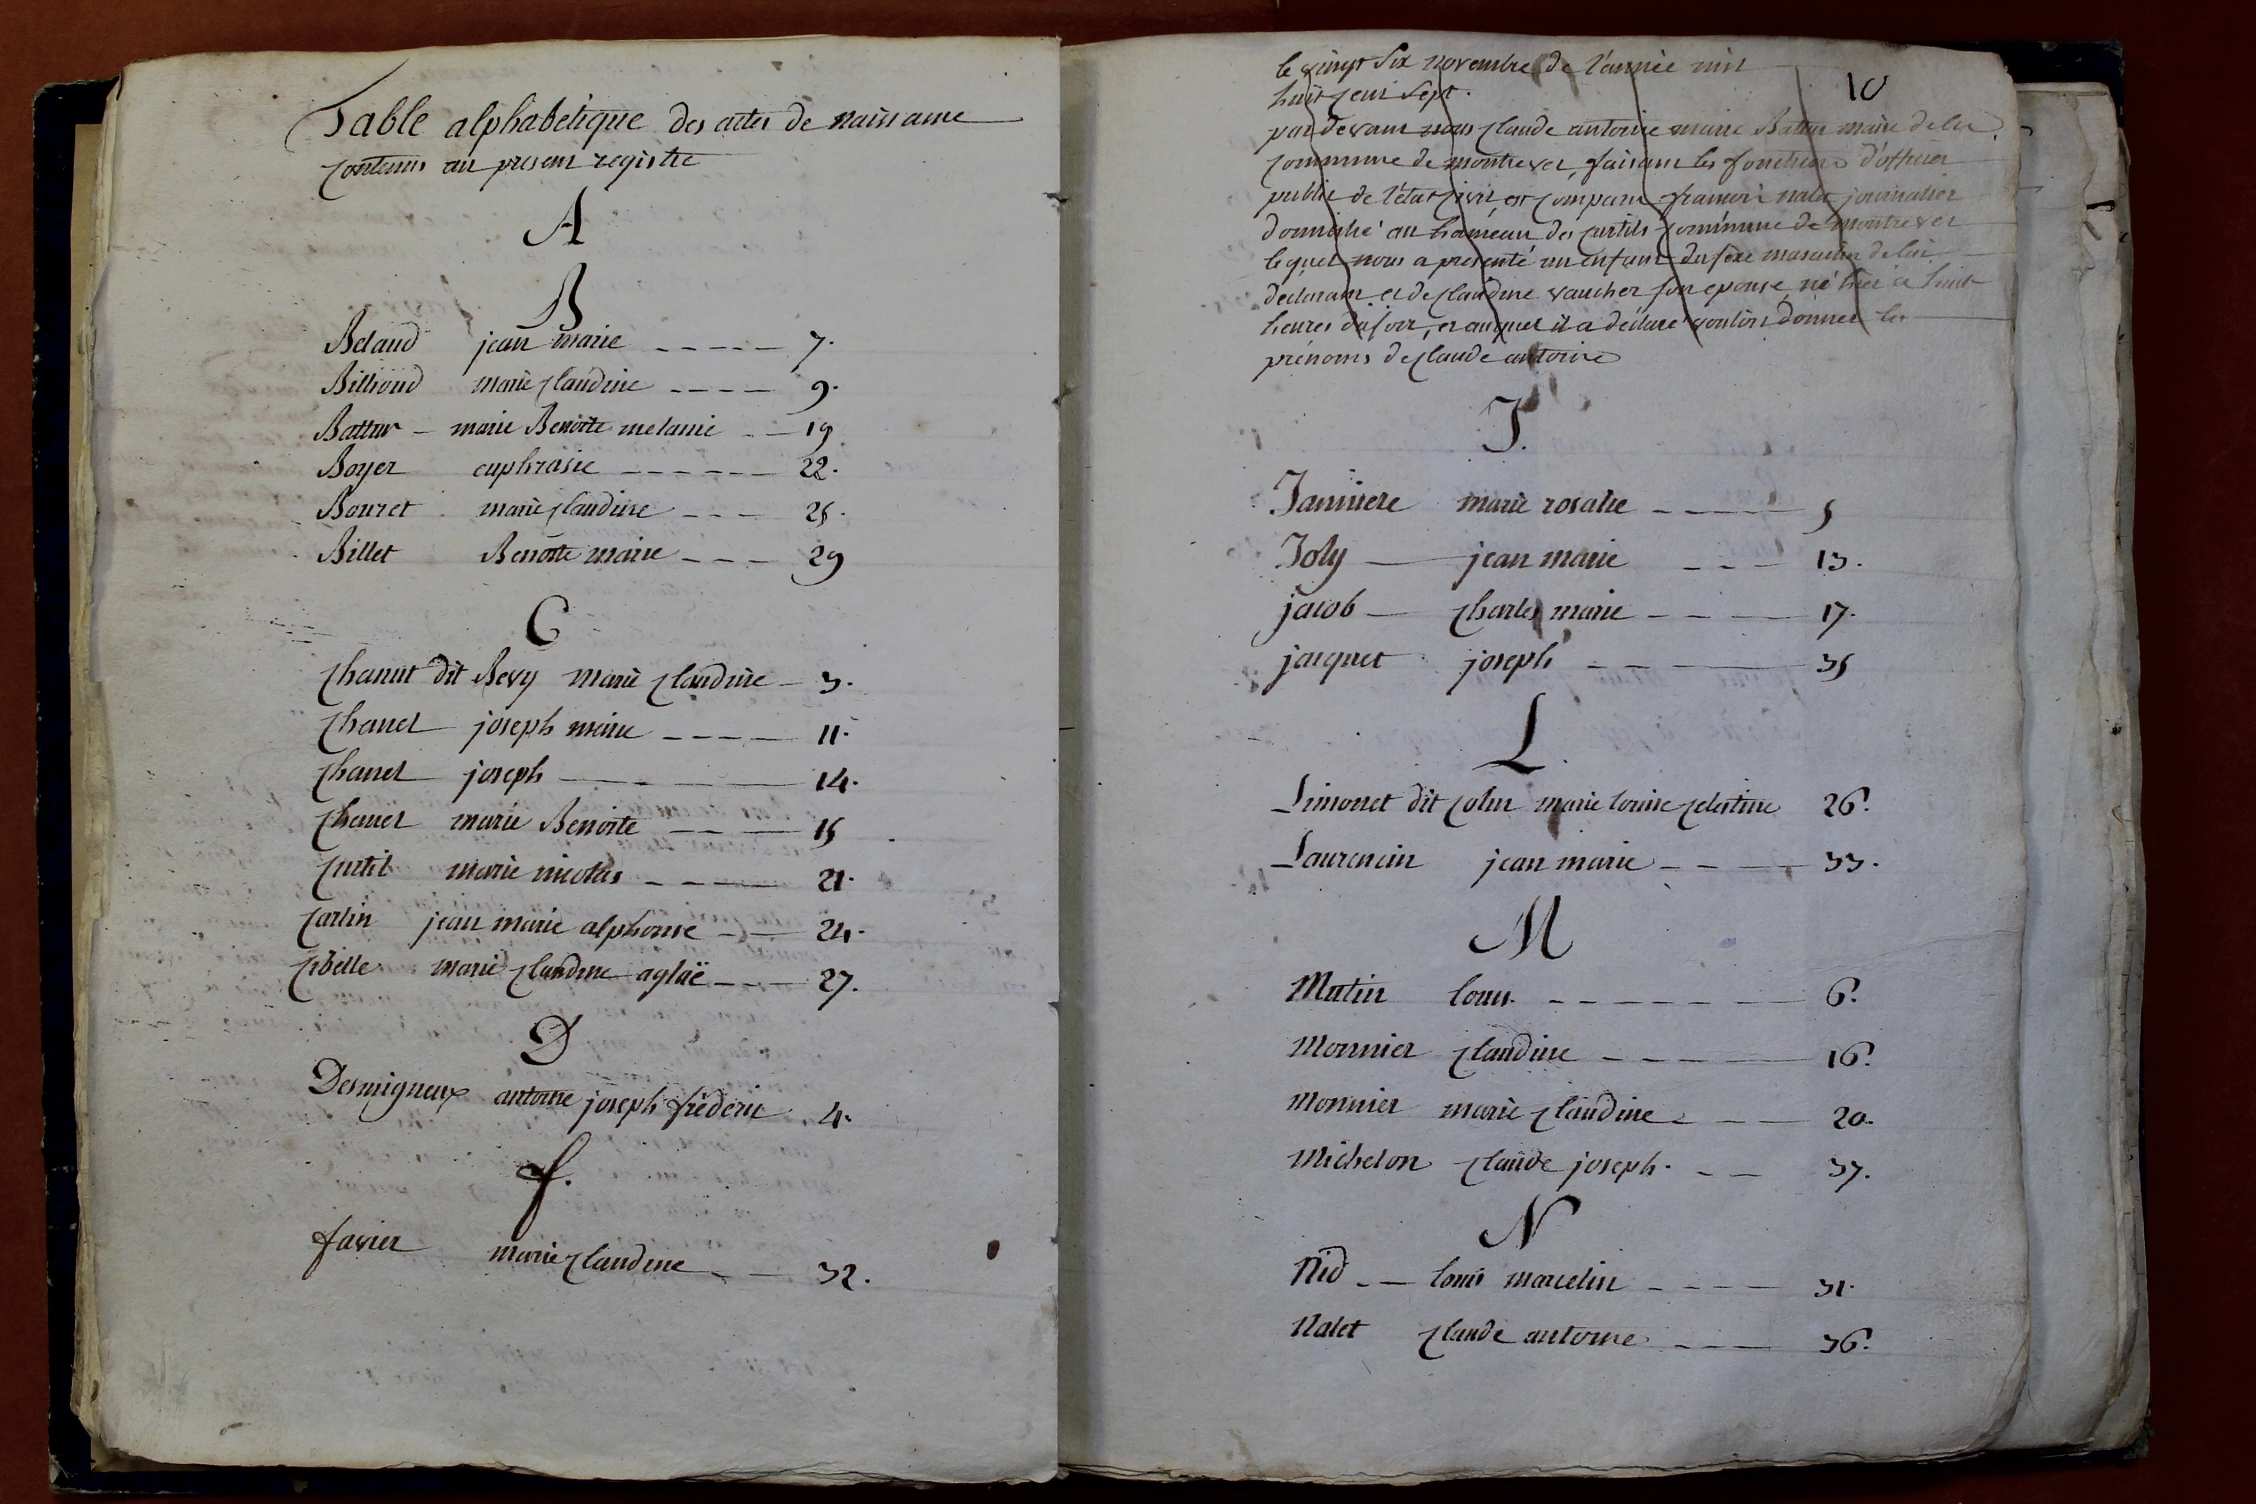 Table alphabetique des actes de naissance
contenus au present registre
A
B
Belaud jean marie 7.
Billioud marie claudine 9.
Battur marie Benoite melanie 19
Boyer euphrasie 22.
Bouret marie claudine 25.
Billet Benoite marie 29
C
Chanut dit Bevy marie claudine 3.
Chanel joseph marie 11.
Chanel joseph 14.
Chanel marie Benoite 15
Curtil marie nicolas 21.
Carlin jean marie alphonse 24.
Cibelle marie claudine aglaë 27.
D
Desmigneux antoine joseph frédéric 4.
f.
favier marie claudine 32.
10
le vingt six novembre de l'année mil
huit cent sept.
par devant nous claude antoine marie Battur maire de la
commune de montrevel, faisant les fonctions d'officier
public de l'état civil, est comparu françois nalet journalier
domicilié au hameau des curtils commune de montrevel
lequel nous a presenté un enfant du sexe masculin de lui
declarant et de claudine vaucher son epouse, né hier a huit
heures du soir, et auquel il a déclaré vouloir donner les
prénoms de claude antoine
J.
Janniere marie rosalie 5
Joly jean marie 13.
jacob charles marie 17.
jacquet joseph 35
L
Limonet dit colin marie louise celestine 26.
Laurencin jean marie 33.
M
Mutin louis 6.
Monnier claudine 16.
Monnier marie claudine 20.
Michelon claude joseph. 37.
N
Nid louis marcelin 31.
Nalet claude antoine 36.